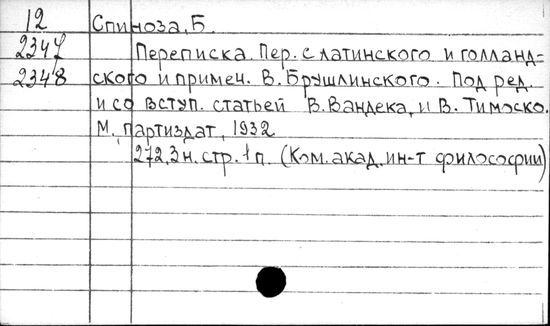 12 Спиноза, Б.
2347 Переписка. Пер. с латинского и голланд-
2348 ского и примеч. В. Брушлинского. Под ред.
и со вступ. статьей В. Вандека, и В. Тимоско.
М, партиздат, 1932
272, 3 н. стр. 1 п. (Ком. акад. ин-т философии)